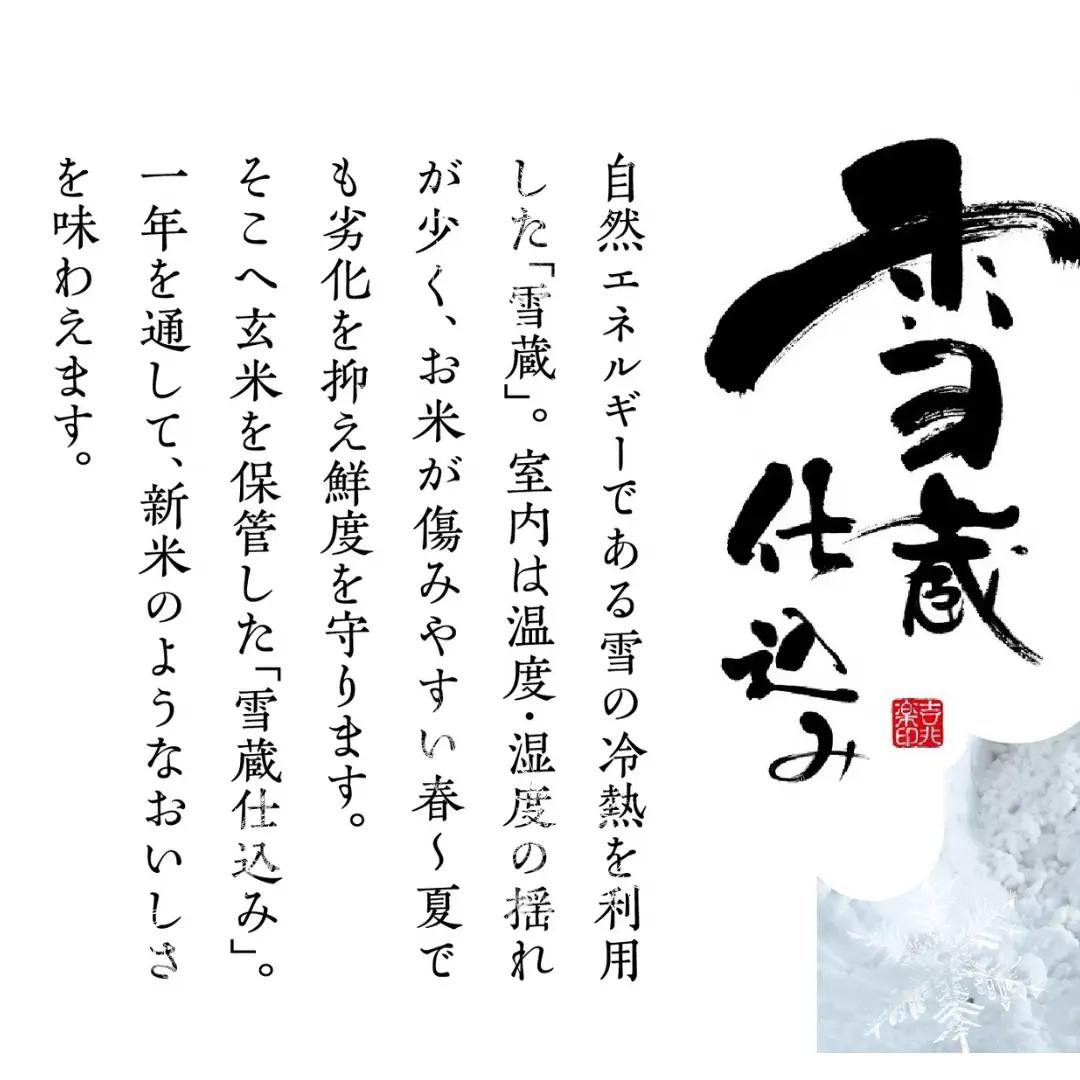 雪蔵
仕込み
吉兆
楽印
自然エネルギーである雪の冷熱を利用
した「雪蔵」。室内は温度・湿度の揺れ
が少く、お米が傷みやすい春～夏で
も劣化を抑え鮮度を守ります。
そこへ玄米を保管した「雪蔵仕込み」。
一年を通して、新米のようなおいしさ
を味わえます。